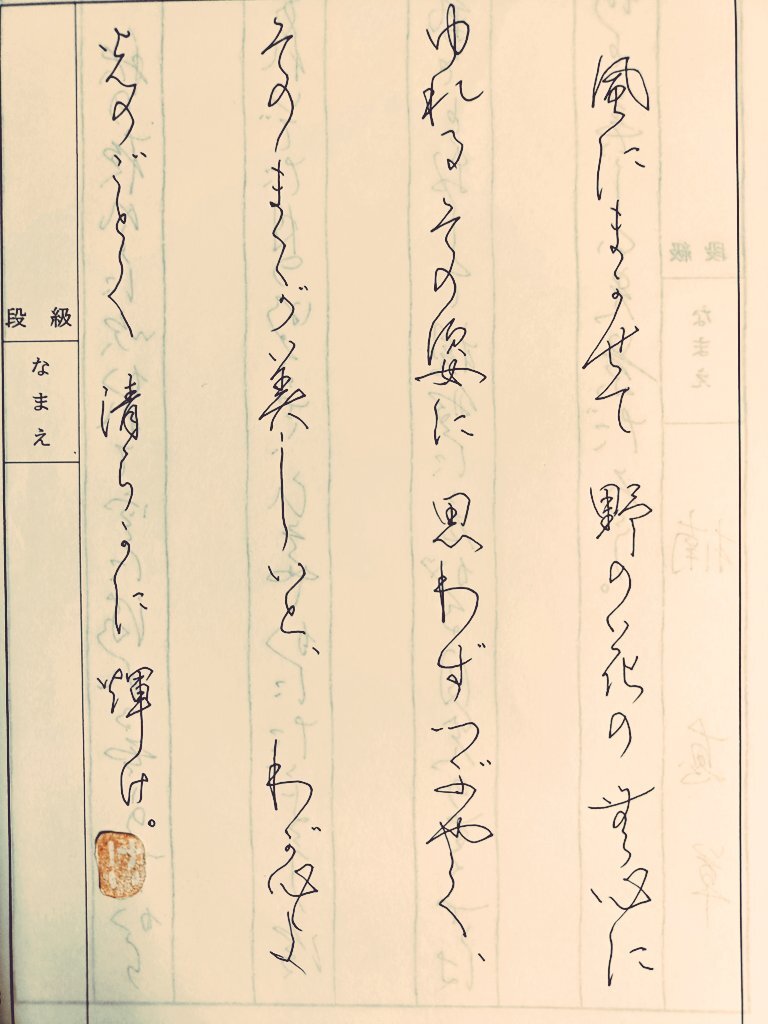 風にまかせて 野の花の 無心に
ゆれるその姿に 思わずつぶやく、
そのままが美しいと、 わが心よ
光のごとく 清らかに 輝け。
段 級
なまえ